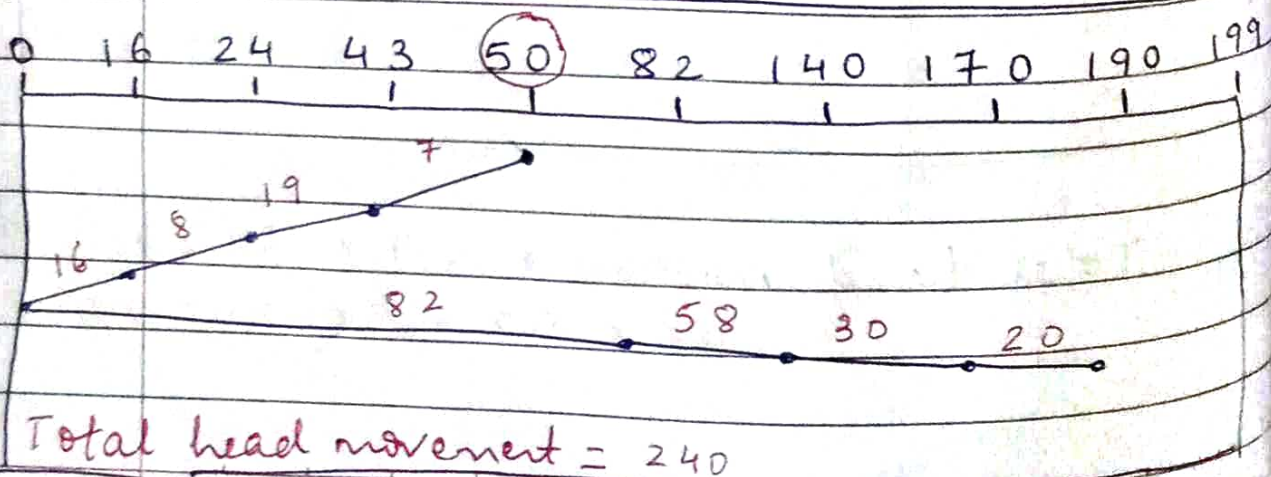 0 16 24 43 50 82 140 170 190 199
7
19
8
16
82 58 30 20
Total head movement = 240